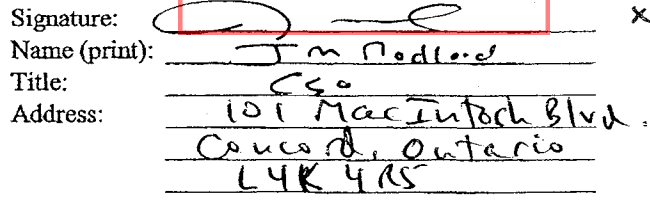 Signature:
Name (print): J M Medford
Title: CSO
Address: 101 MacIntosh Blvd.
Concord, Ontario
L4K 4R5